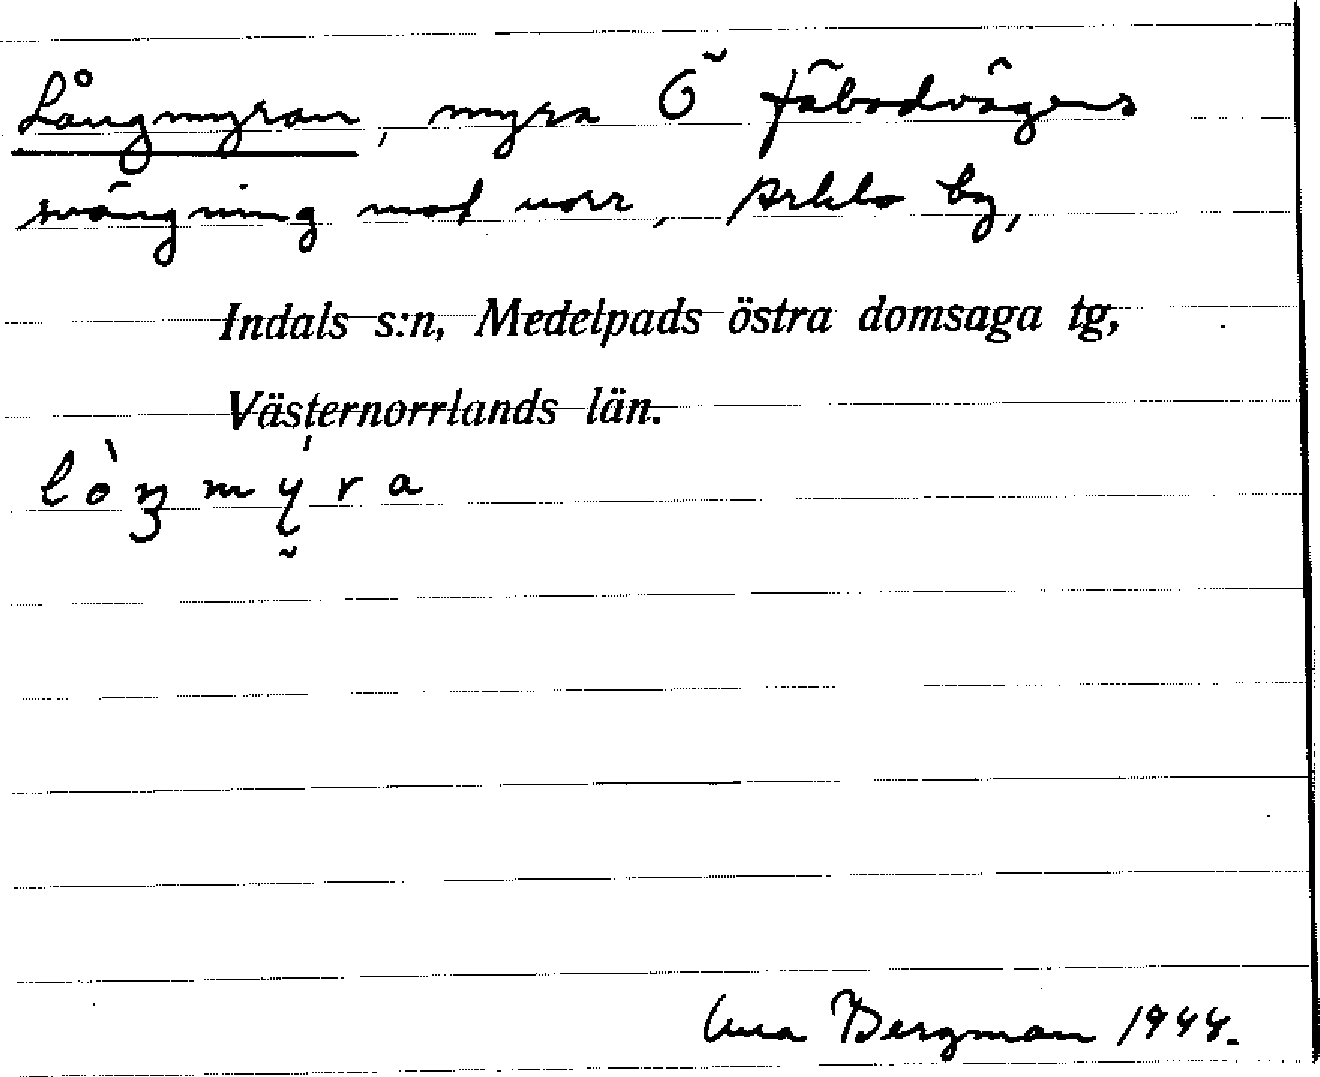 Långmyran, myra Ö fäbodvägens
svängning mot norr, by,
Indals s:n, Medelpads östra domsaga tg,
Västernorrlands län.
Bergman 1944.